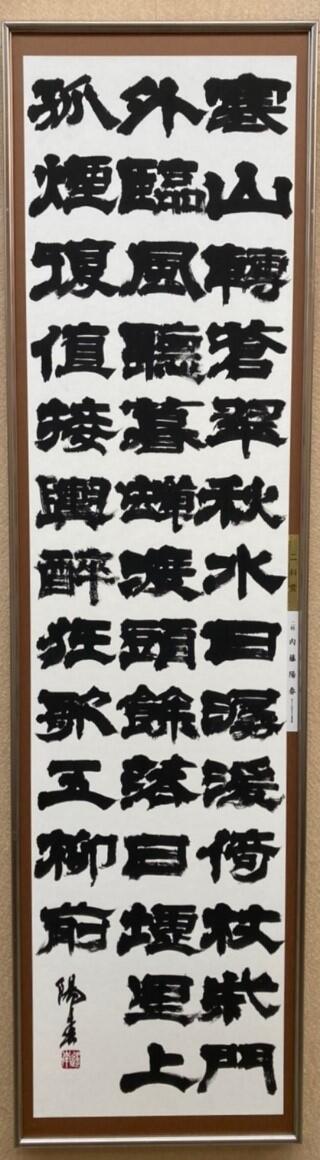 寒山轉蒼翠秋水日潺湲倚杖柴門
外臨風聽暮蟬渡頭餘落日墟里上
孤煙復值接輿醉狂歌五柳前
陽春
二科賞
内藤陽春